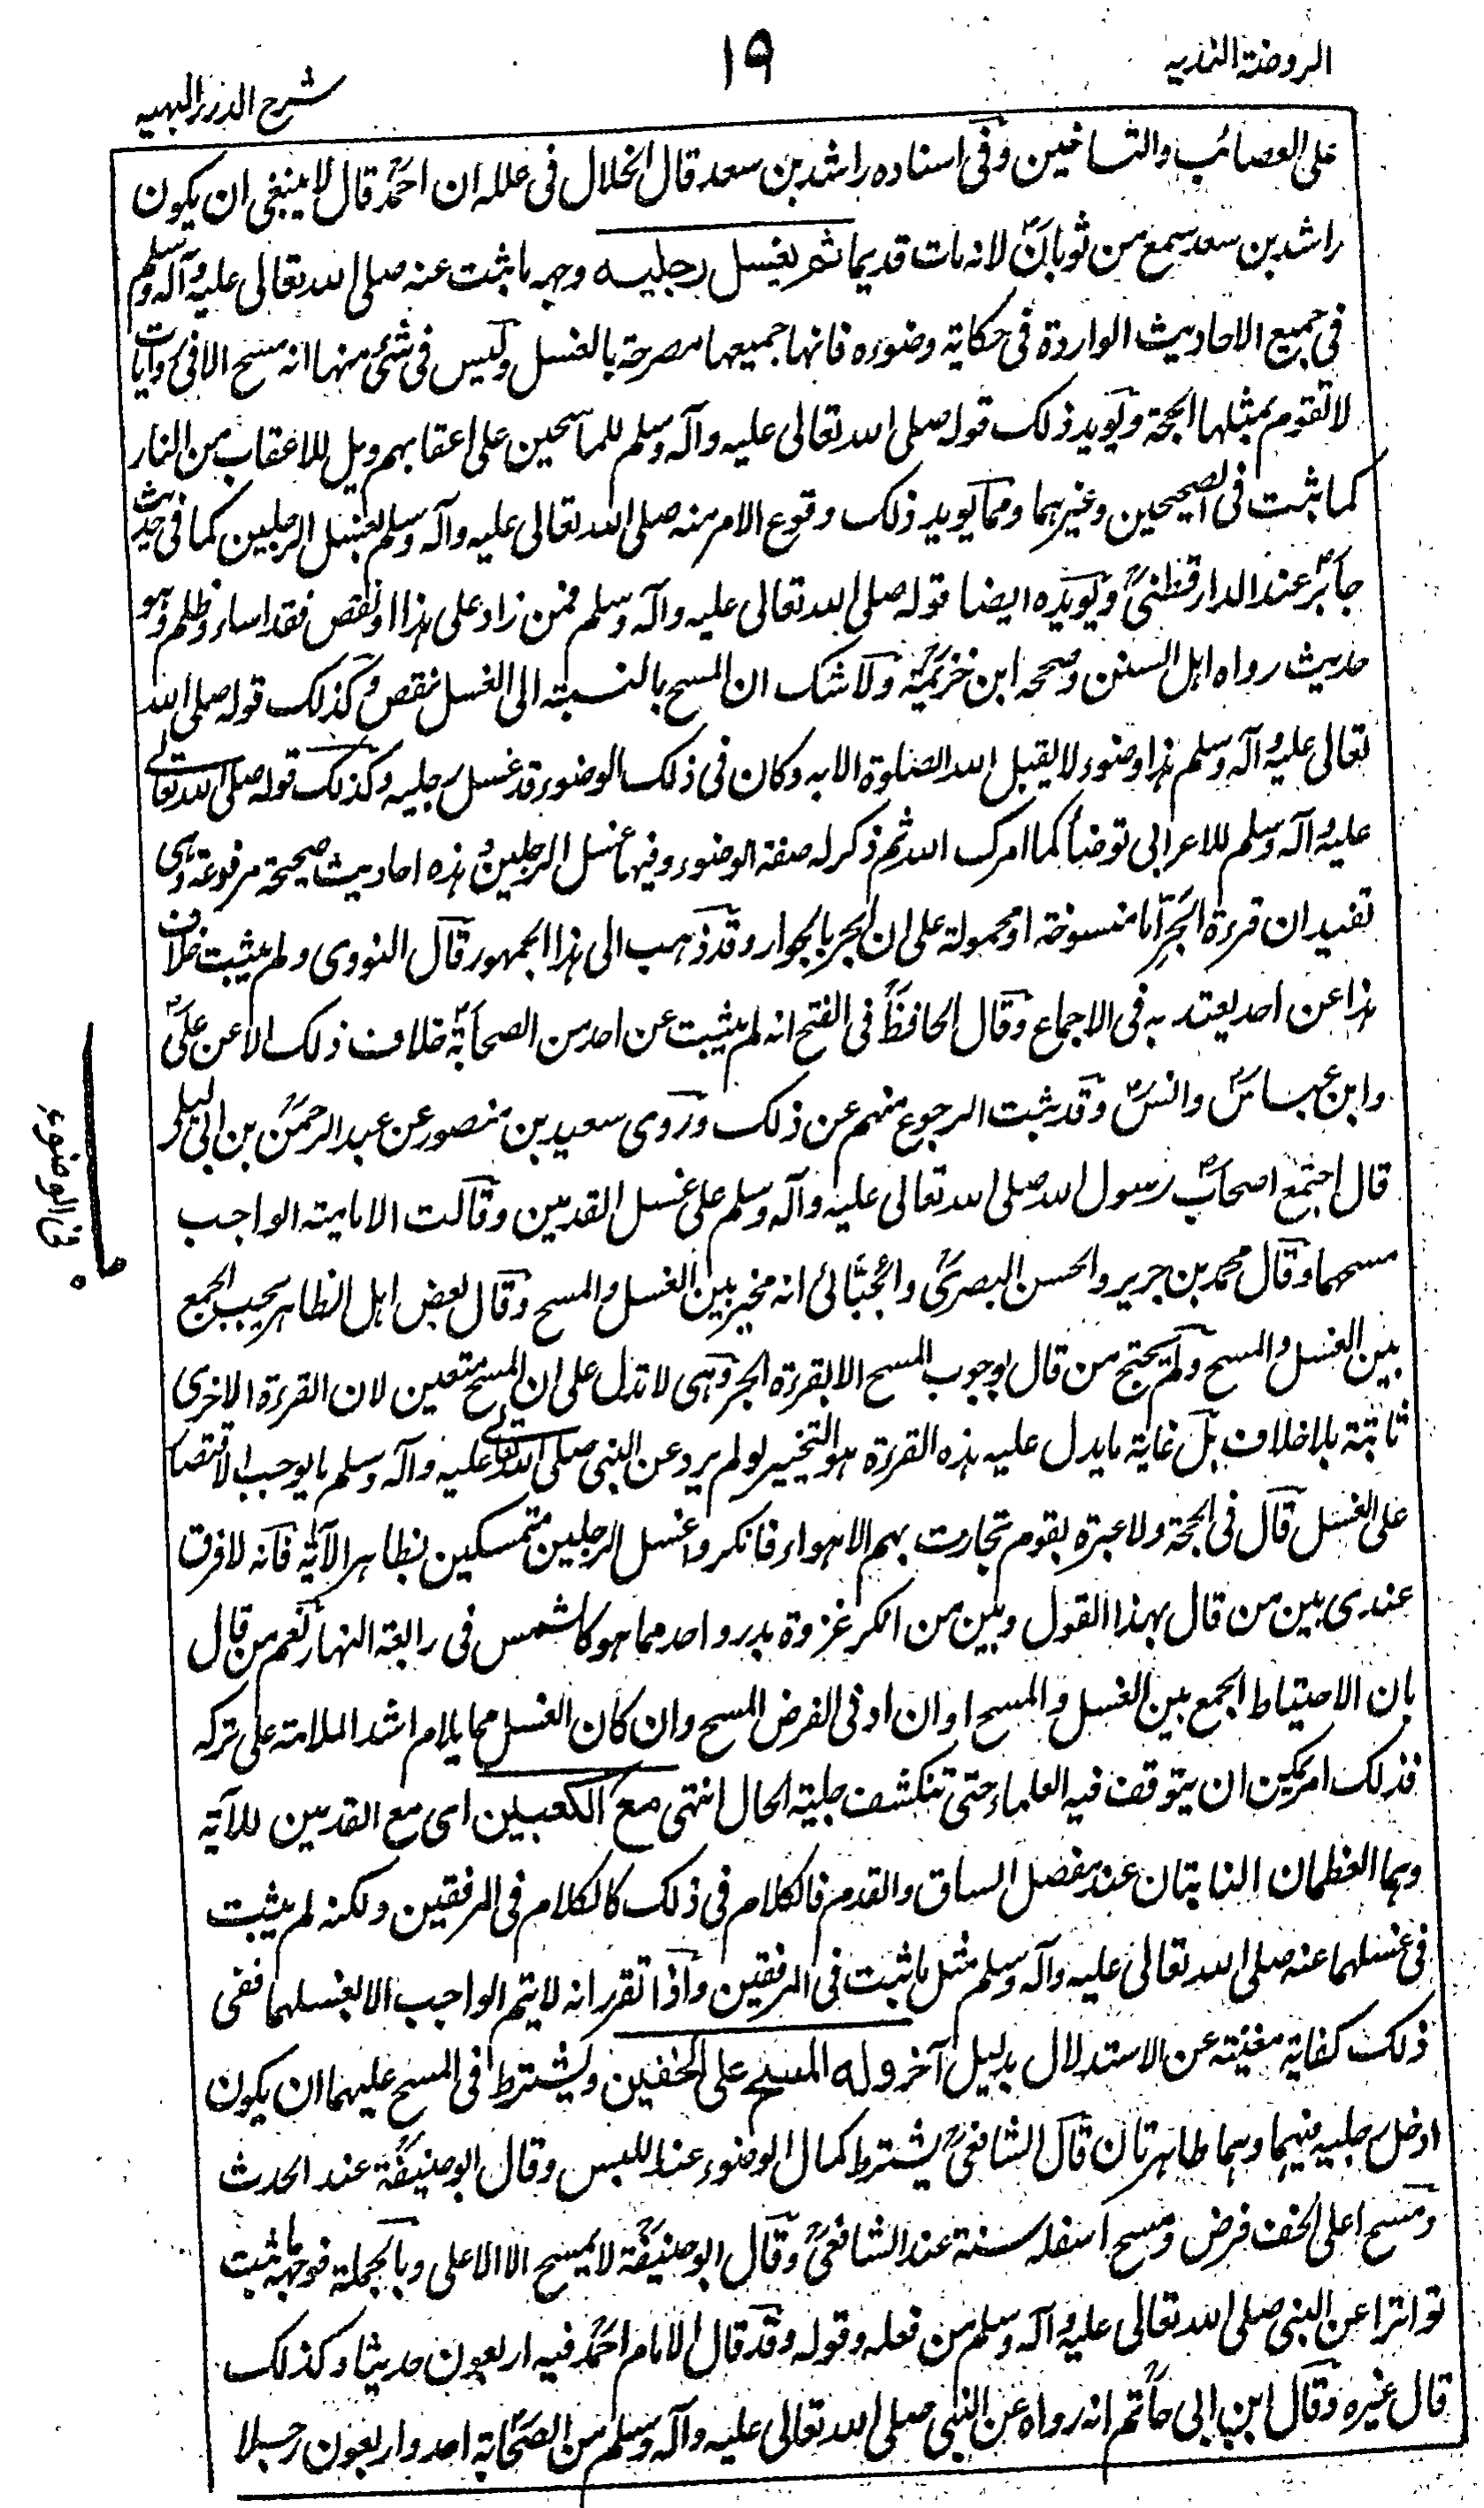 الروضة الندية
١٩
شرح الدرر البهية
على العصائب والتساخين وفى اسناده راشد بن سعد قال الخلال فى علله ان احمد قال لا ينبغى ان يكون
راشد بن سعد سمع من ثوبان لانه مات قديما ثم يغسل رجليه وجهه ما ثبت عنه صلى الله تعالى عليه وآله وسلم
فى جميع الاحاديث الواردة فى حكاية وضوءه فانها جميعها مصرحة بالغسل وليس فى شئ منها انه مسح الا فى روايات
لا تقوم بمثلها الحجة ويويد ذلك قوله صلى الله تعالى عليه وآله وسلم للماسحين على اعقابهم ويل للاعقاب من النار
كما ثبت فى الصحيحين وغيرهما ومما يويد ذلك وقوع الامر منه صلى الله تعالى عليه وآله وسلم بغسل الرجلين كما فى حديث
جابر عند الدارقطنى ويويده ايضا قوله صلى الله تعالى عليه وآله وسلم فمن زاد على هذا او نقص فقد اساء وظلم وهو
حديث رواه اهل السنن وصححه ابن خزيمة ولا شك ان المسح بالنسبة الى الغسل نقص وكذلك قوله صلى الله
تعالى عليه وآله وسلم هذا وضوء لا يقبل الله الصلوة الا به وكان فى ذلك الوضوء قد غسل رجليه وكذلك قوله صلى الله تعالى
عليه وآله وسلم للاعرابى توضأ كما امرك الله ثم ذكر له صفة الوضوء وفيها غسل الرجلين وهذه احاديث صحيحة مرفوعة وهى
تفيد ان قرءة الجر اما منسوخة او محمولة على ان الجر بالجوار وقد ذهب الى هذا الجمهور قال النووى ولم يثبت خلاف
هذا عن احد يعتد به فى الاجماع وقال الحافظ فى الفتح انه لم يثبت عن احد من الصحابة خلاف ذلك الا عن على
وابن عباس وانس وقد ثبت الرجوع منهم عن ذلك وروى سعيد بن منصور عن عبد الرحمن بن ابى ليلى
قال اجتمع اصحاب رسول الله صلى الله تعالى عليه وآله وسلم على غسل القدمين وقالت الامامية الواجب
مسحهما وقال محمد بن جرير والحسن البصرى والجبائى انه مخير بين الغسل والمسح وقال بعض اهل الظاهر يجب الجمع
بين الغسل والمسح ولم يحتج من قال بوجوب المسح الا بقرءة الجر وهى لا تدل على ان المسح متعين لان القرءة الاخرى
ثابتة بلا خلاف بل غاية ما يدل عليه هذه القرءة هو التخيير لو لم يرد عن النبى صلى الله تعالى عليه وآله وسلم ما يوجب الاقتصار
على الغسل قال فى الحجة ولا عبرة بقوم تجارت بهم الاهواء فانكروا غسل الرجلين متمسكين بظاهر الآية فانه لا فرق
عندى بين من قال بهذا القول وبين من انكر غزوة بدر واحد مما هو كالشمس فى رابعة النهار نعم من قال
بان الاحتياط الجمع بين الغسل والمسح او ان ادنى الفرض المسح وان كان الغسل مما يلام اشد الملامة على تركه
فذلك امر يمكن ان يتوقف فيه العلماء حتى تنكشف جلية الحال انتهى مع الكعبين اى مع القدمين للآية
وهما العظمان الناتيان عند مفصل الساق والقدم فالكلام فى ذلك كالكلام فى المرفقين ولكنه لم يثبت
فى غسلهما عنه صلى الله تعالى عليه وآله وسلم مثل ما ثبت فى المرفقين واذا تقرر انه لا يتم الواجب الا بغسلهما ففى
ذلك كفاية مغنية عن الاستدلال بدليل آخر وله المسح على الخفين ويشترط فى المسح عليهما ان يكون
ادخل رجليه فيهما وهما طاهرتان قال الشافعى يشترط كمال الوضوء عند اللبس وقال ابو حنيفة عند الحدث
ومسح اعلى الخف فرض ومسح اسفله سنة عند الشافعى وقال ابو حنيفة لا يمسح الا الاعلى وبالجملة فوجهه ما ثبت
تواترا عن النبى صلى الله تعالى عليه وآله وسلم من فعله وقوله وقد قال الامام احمد فيه اربعون حديثا وكذلك
قال غيره وقال ابن ابى حاتم انه رواه عن النبى صلى الله تعالى عليه وآله وسلم من الصحابة احد واربعون رجلا